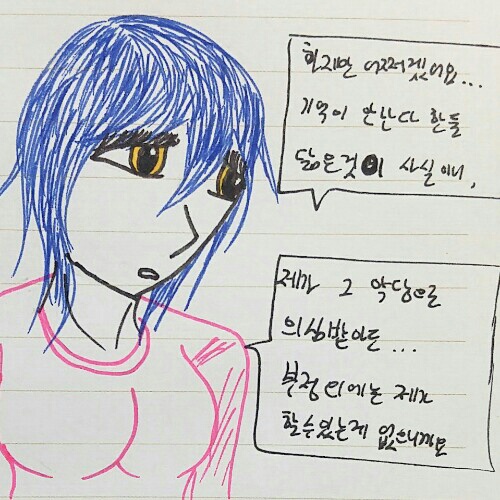 하지만 어쩌겠어요...
기억이 안난다 한들
닮은것이 사실이니,
제가 그 악당으로
의심받아도...
부정외에는 제가
할수있는게 없으니까요